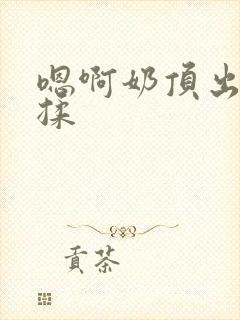 嗯啊奶頂出
揉
貢茶